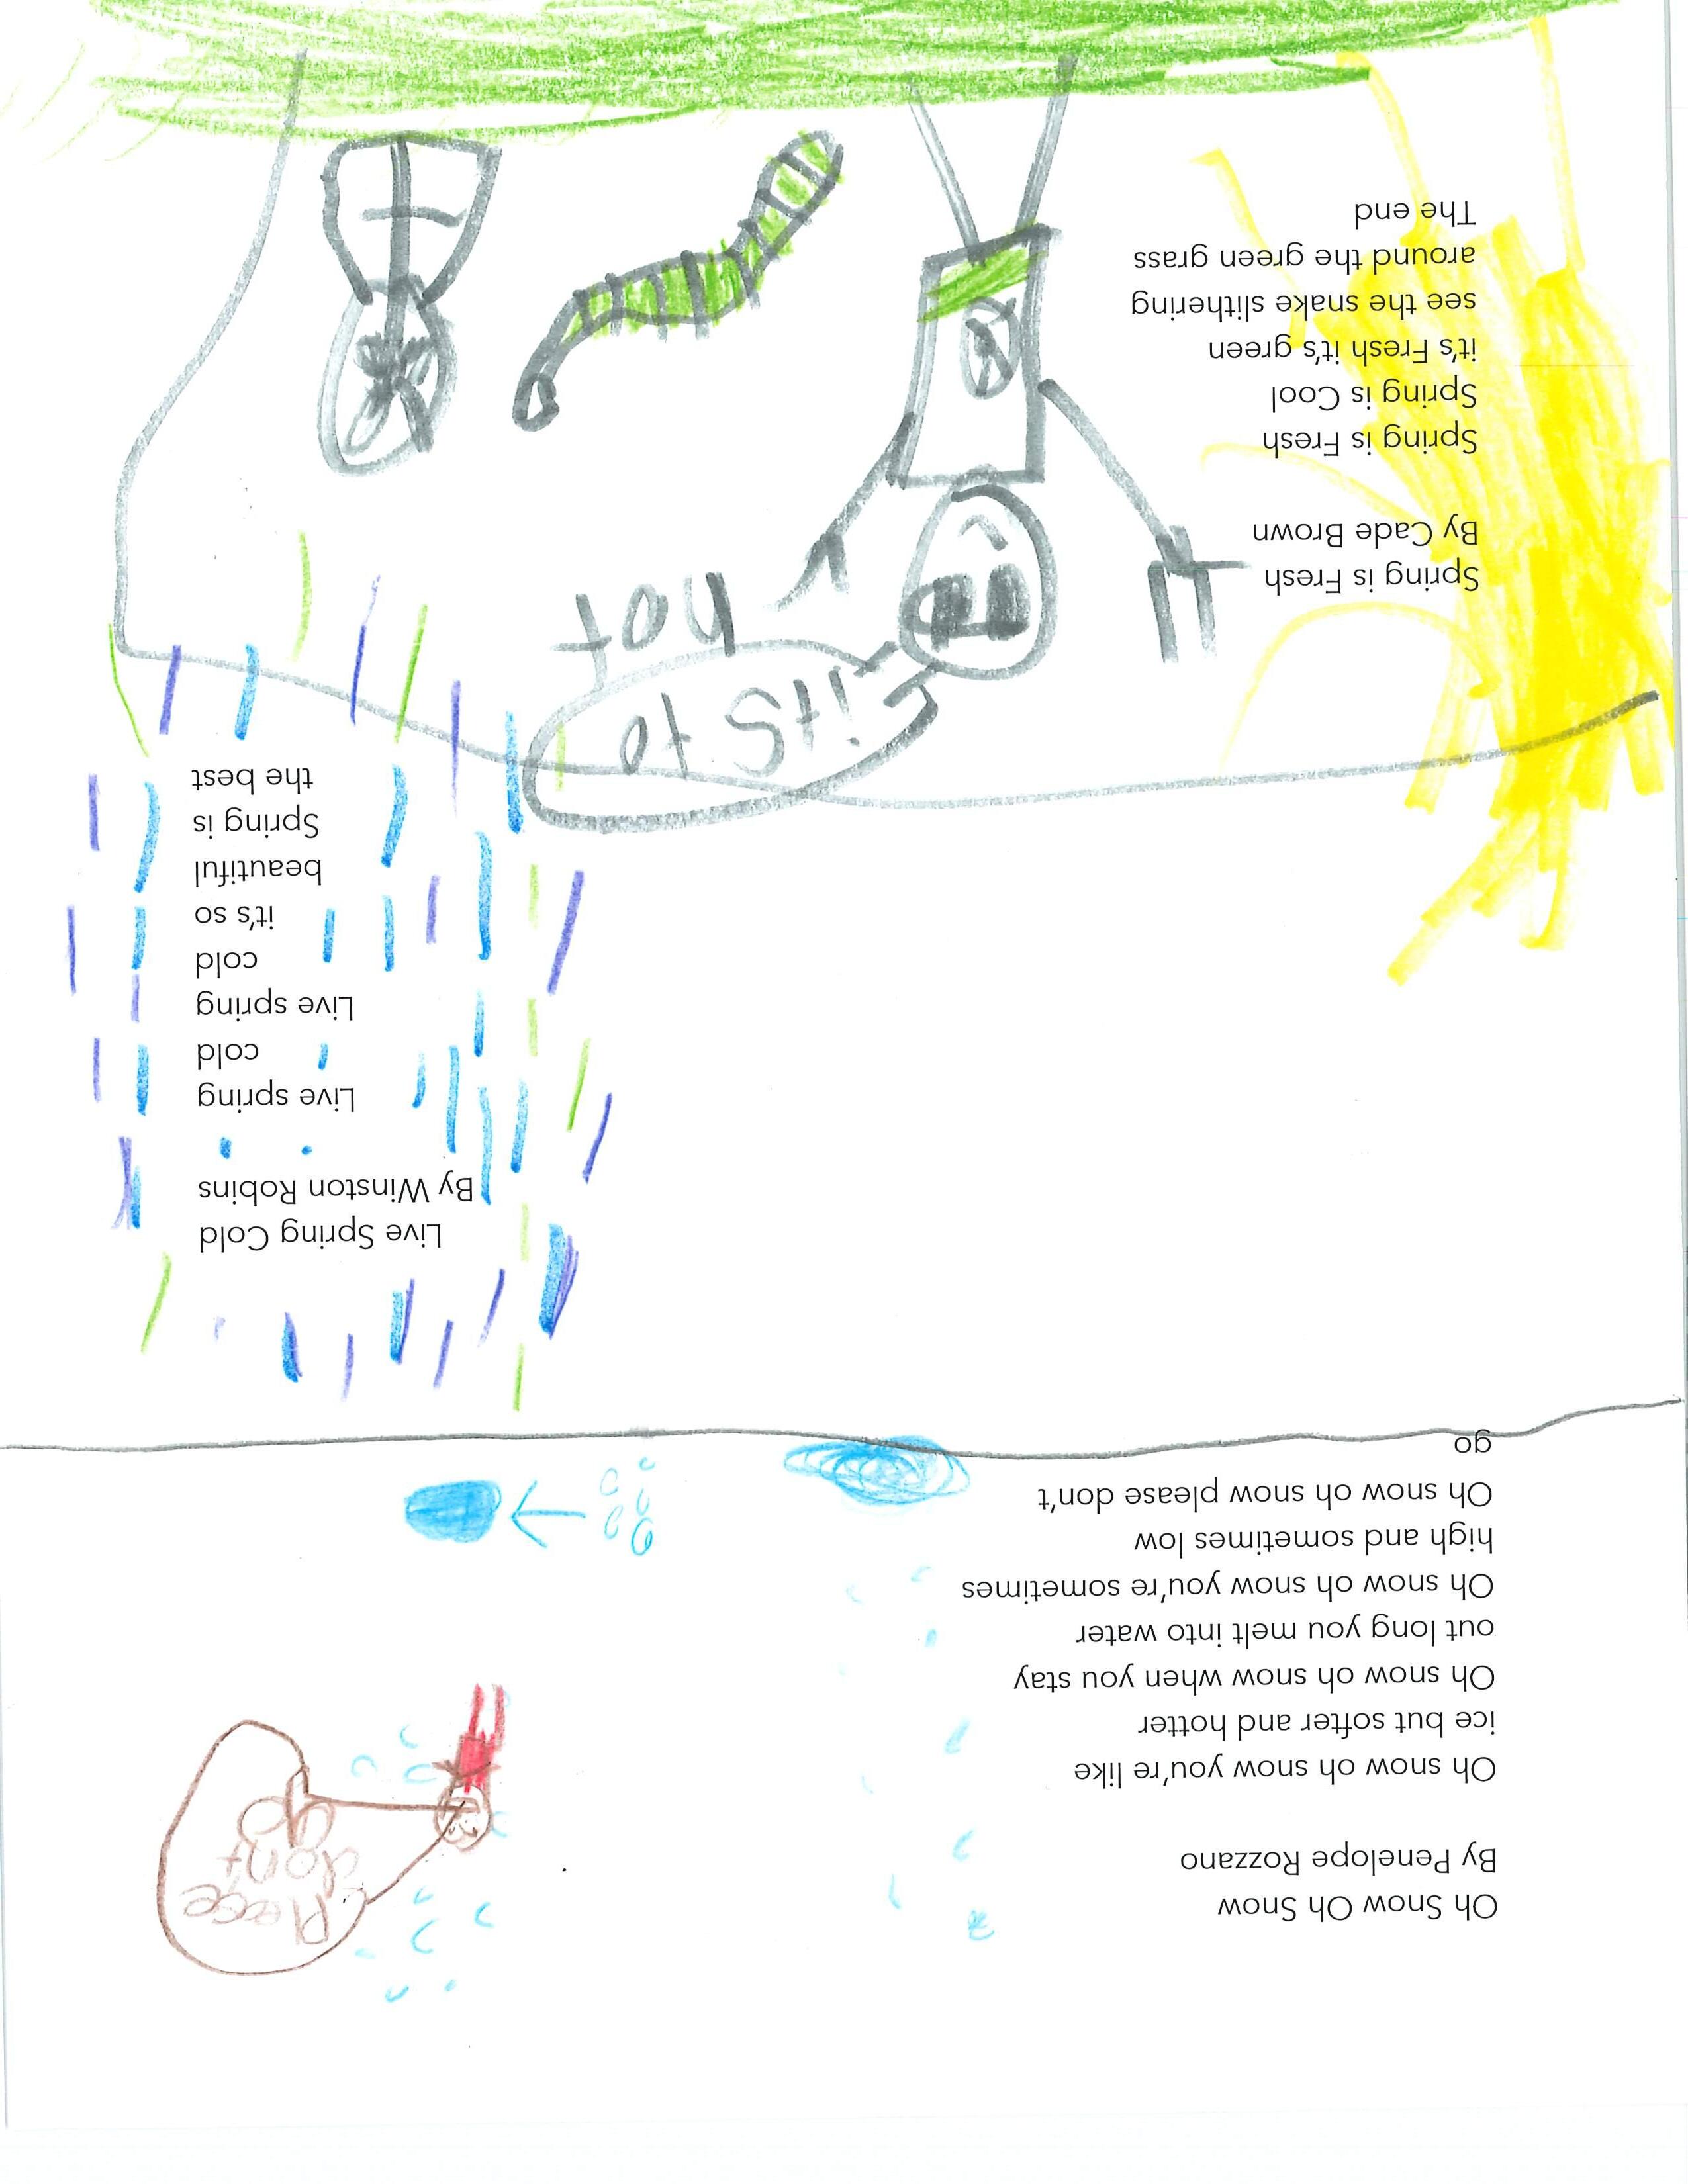 Oh Snow Oh Snow
By Penelope Rozzano
Oh snow oh snow you're like
ice but softer and hotter
Oh snow oh snow when you stay
out long you melt into water
Oh snow oh snow you're sometimes
high and sometimes low
Oh snow oh snow please don't
go
Please
don't
go
Live Spring Cold
By Winston Robins
Live spring
cold
Live spring
cold
it's so
beautiful
Spring is
the best
its to
hot
Spring is Fresh
By Cade Brown
Spring is Fresh
Spring is Cool
it's Fresh it's green
see the snake slithering
around the green grass
The end